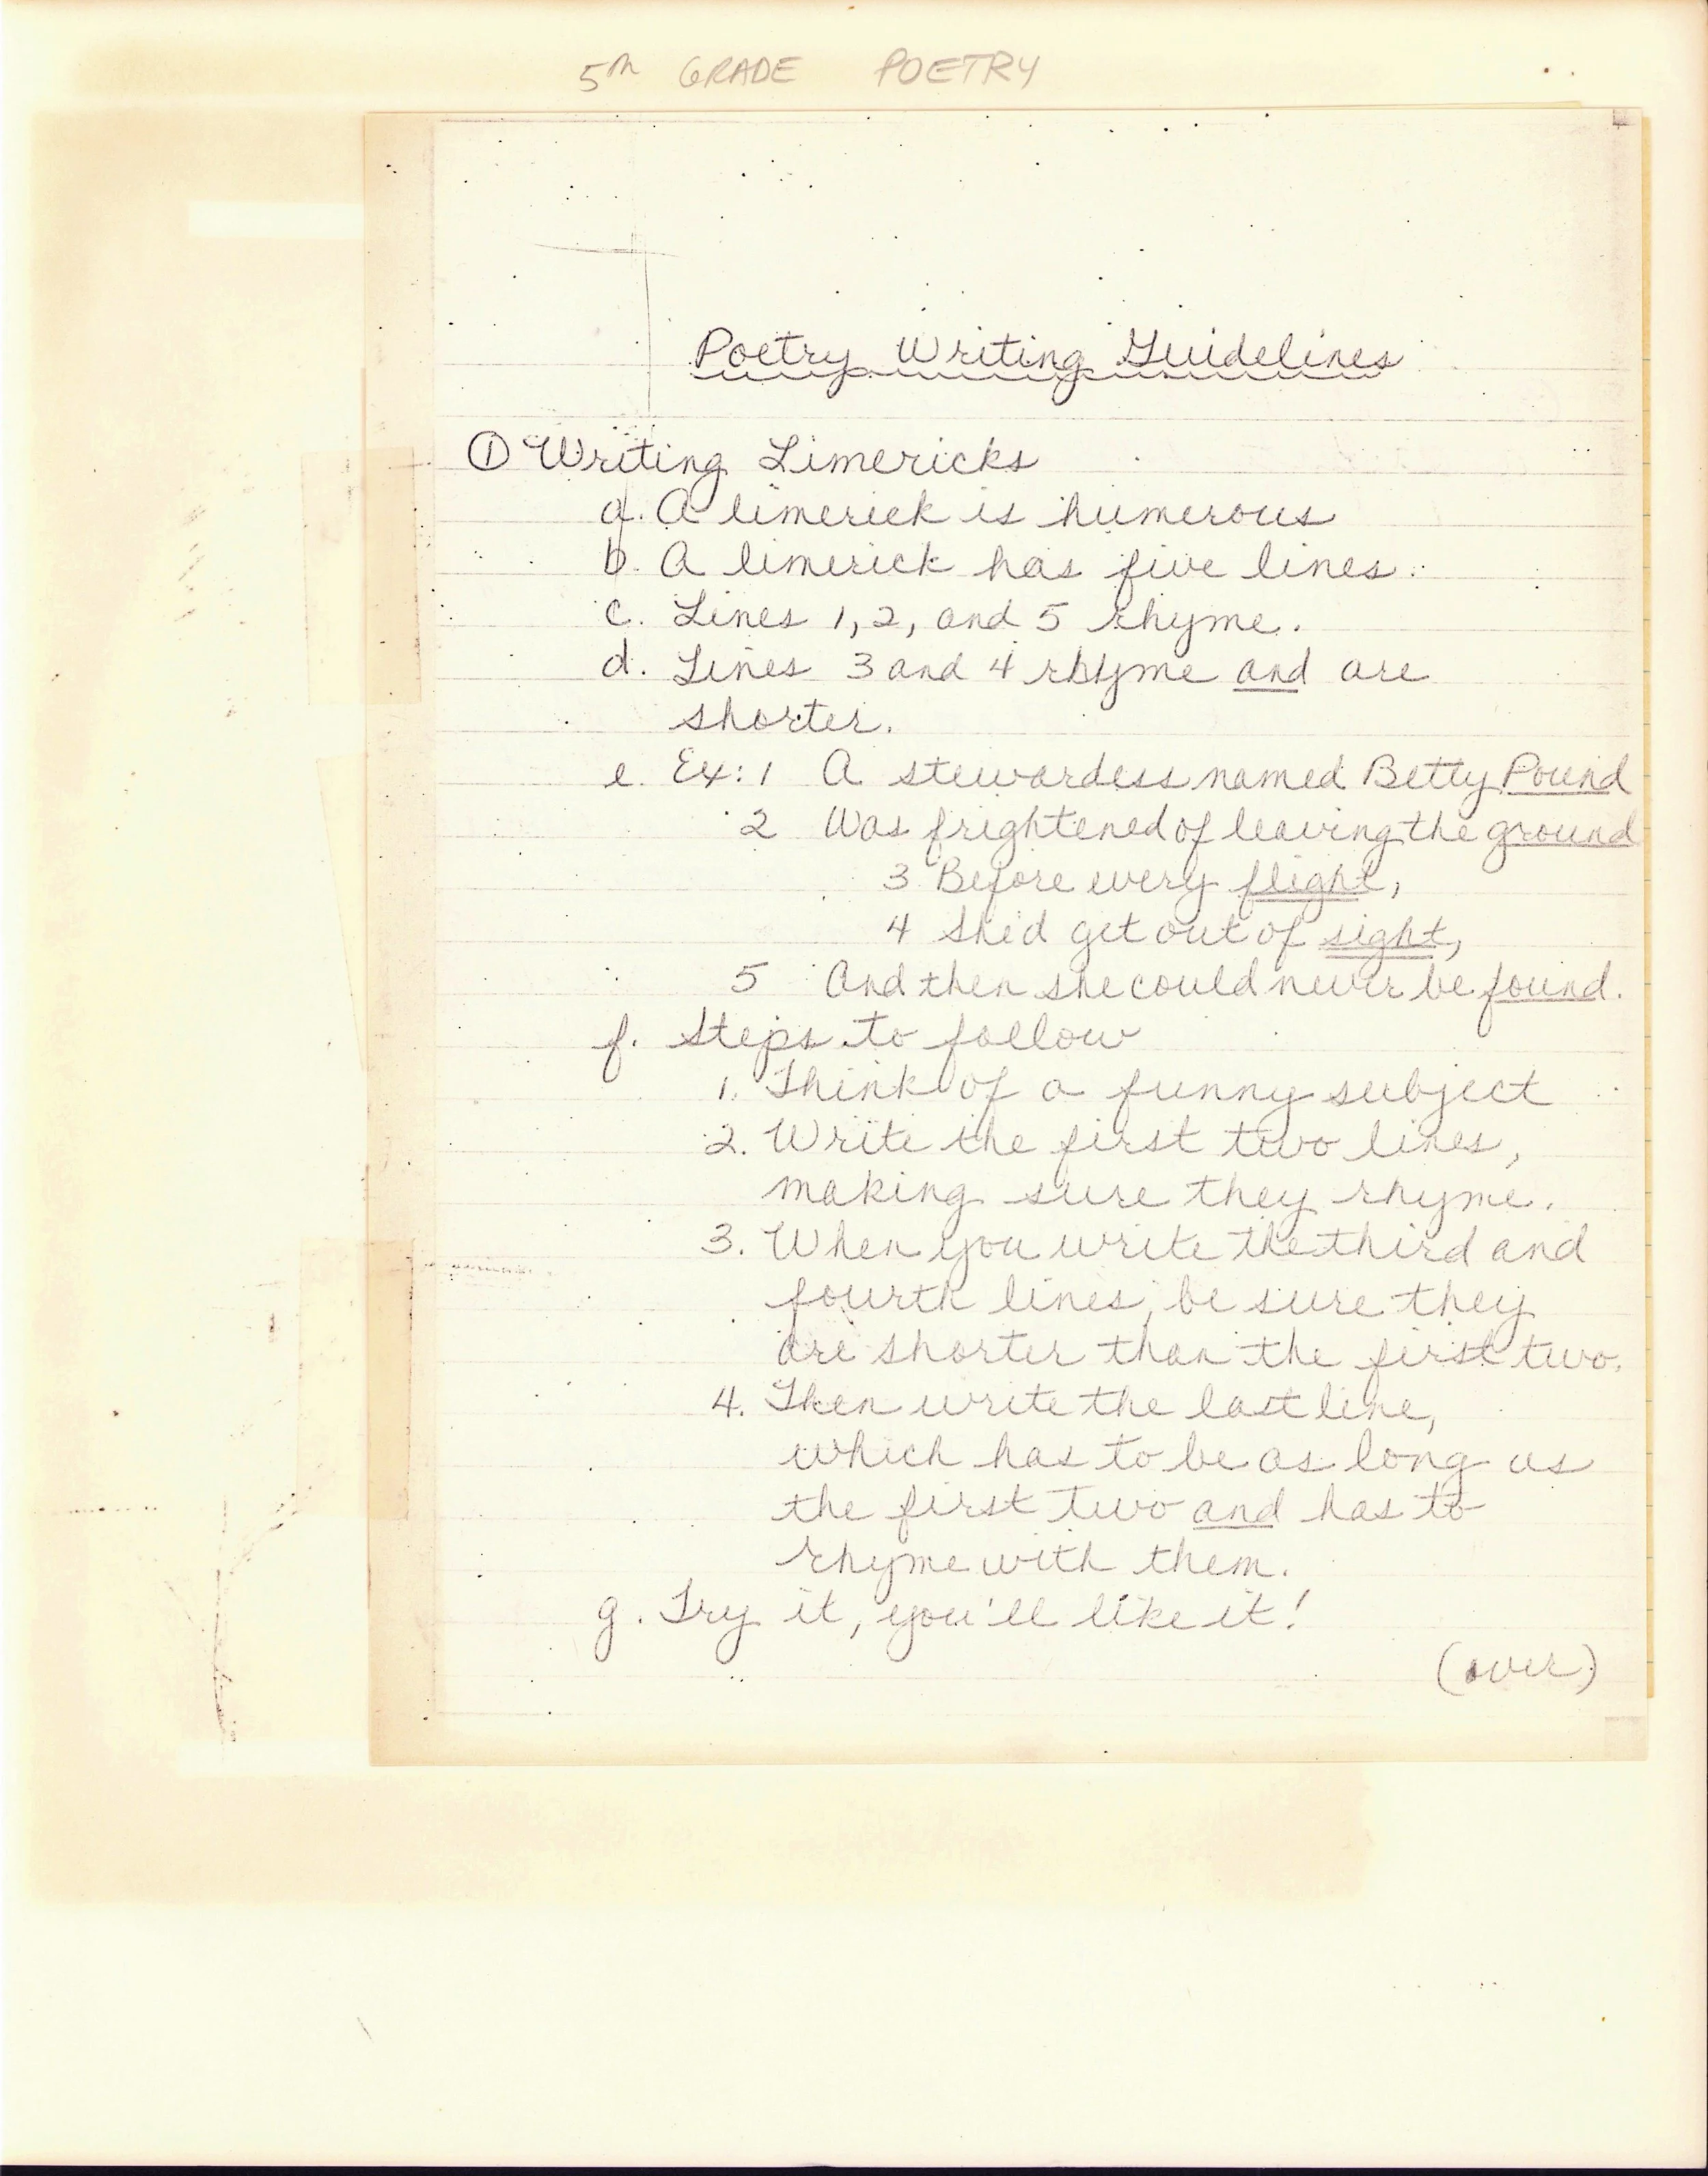 5th GRADE POETRY
Poetry Writing Guidelines
① Writing Limericks
a. A limerick is humerous
b. A limerick has five lines.
c. Lines 1, 2, and 5 rhyme.
d. Lines 3 and 4 rhyme and are
shorter.
e. Ex: 1 A stewardess named Betty Pound
2 Was frightened of leaving the ground
3 Before every flight,
4 She'd get out of sight,
5 And then she could never be found.
f. Steps to follow
1. Think of a funny subject
2. Write the first two lines,
making sure they rhyme.
3. When you write the third and
fourth lines, be sure they
are shorter than the first two.
4. Then write the last line,
which has to be as long as
the first two and has to
rhyme with them.
g. Try it, you'll like it!
(over)